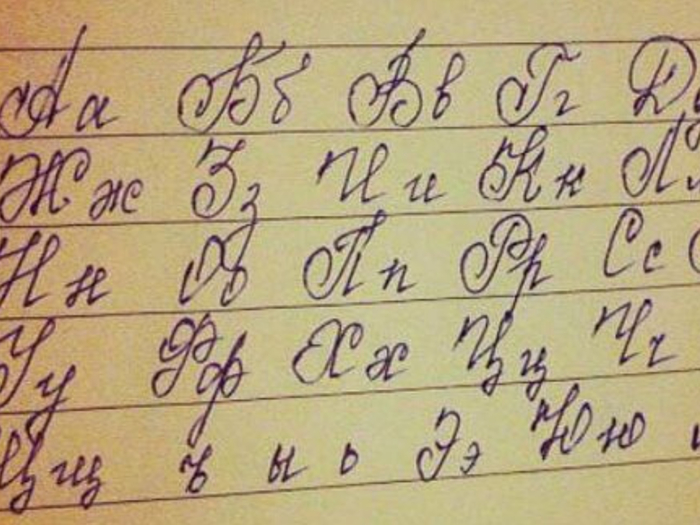 Аа Бб Вв Гг Д
Жж Зз Ии Кк Лл
Нн Оо Пп Рр Сс
Уу Фф Хх Цц Чч
Щщ ъ ы ь Ээ Юю